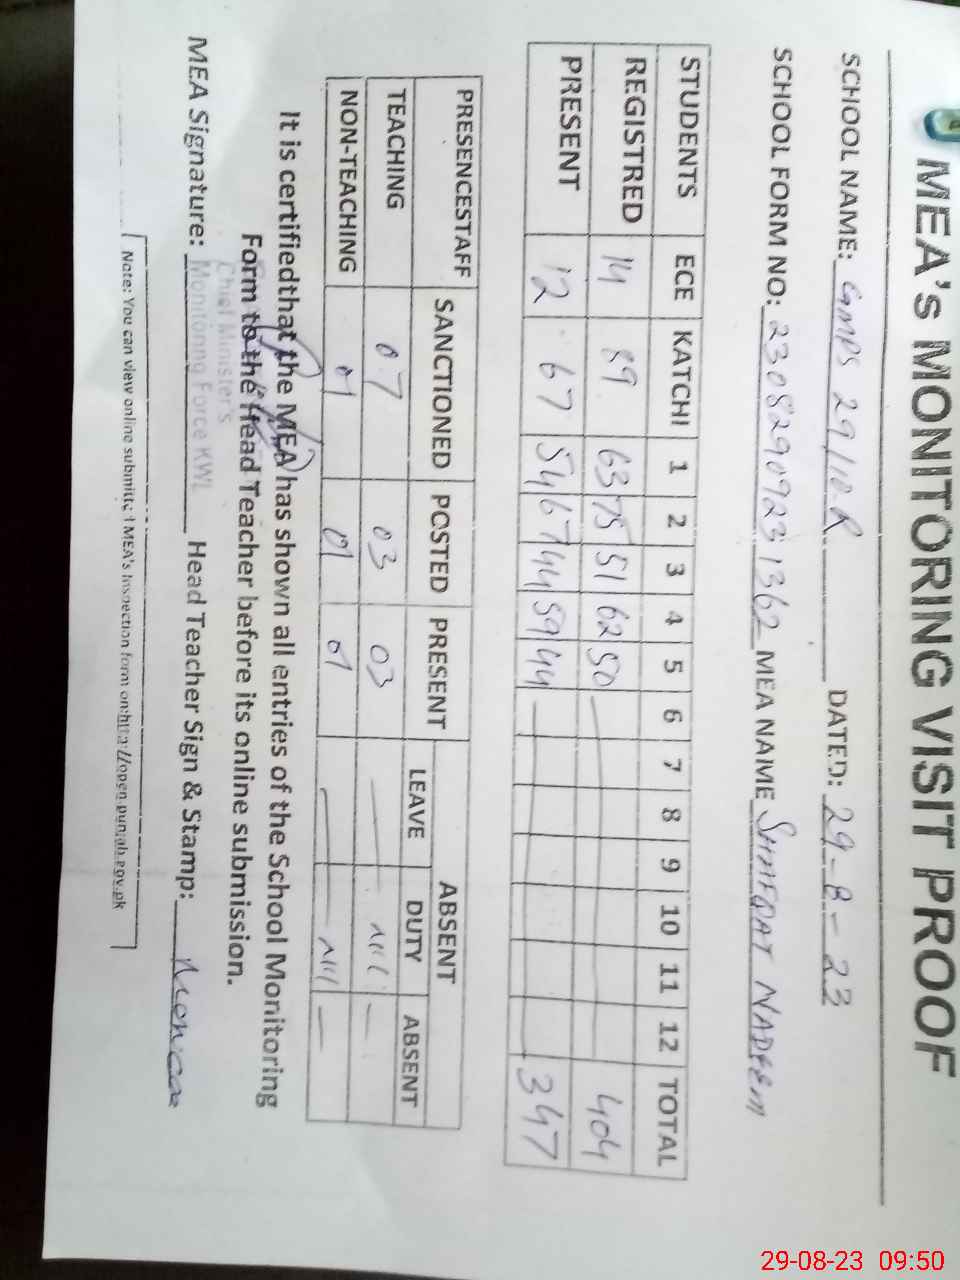 MEA's MONITORING VISIT PROOF
SCHOOL NAME: GMPS 29/10.R DATED: 29-8-23
SCHOOL FORM NO: 23082909231362 MEA NAME SHAFQAT NADEEM
STUDENTS ECE KATCHI 1 2 3 4 5 6 7 8 9 10 11 12 TOTAL
REGISTRED 14 89 63 75 51 62 50 404
PRESENT 12 67 54 67 44 59 44 347
PRESENCESTAFF SANCTIONED POSTED PRESENT ABSENT
LEAVE DUTY ABSENT
TEACHING 07 03 03 — Nil —
NON-TEACHING 01 01 01 — Nil —
It is certifiedthat the MEA has shown all entries of the School Monitoring
Form to the Head Teacher before its online submission.
Chief Minister's
Monitoring Force KWL
MEA Signature: Head Teacher Sign & Stamp: Monica
Note: You can view online submitted MEA's Inspection form on:http://open.punjab.gov.pk
29-08-23 09:50